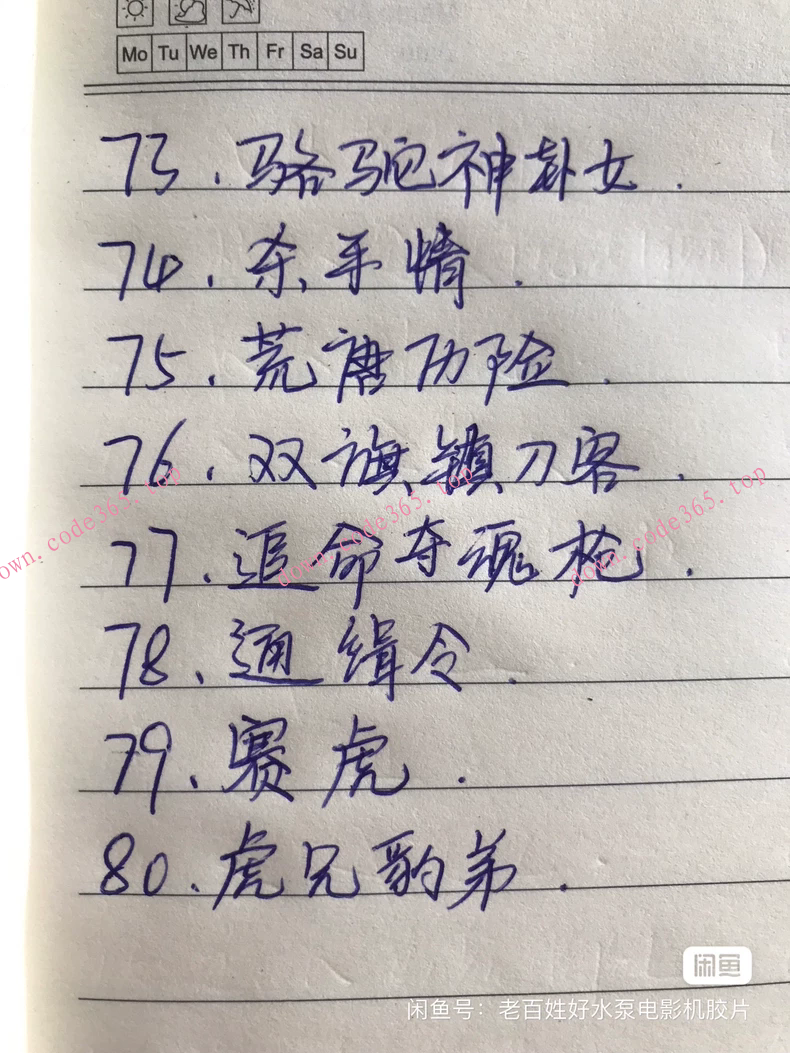 Mo Tu We Th Fr Sa Su
73.骆驼神卦女.
74.杀手情.
75.荒唐历险.
76.双旗镇刀客.
77.追命夺魂枪.
78.通缉令.
79.赛虎.
80.虎兄豹弟.
own.code365.top
down.code365.top
down.code365.top
闲鱼
闲鱼号：老百姓好水泵电影机胶片